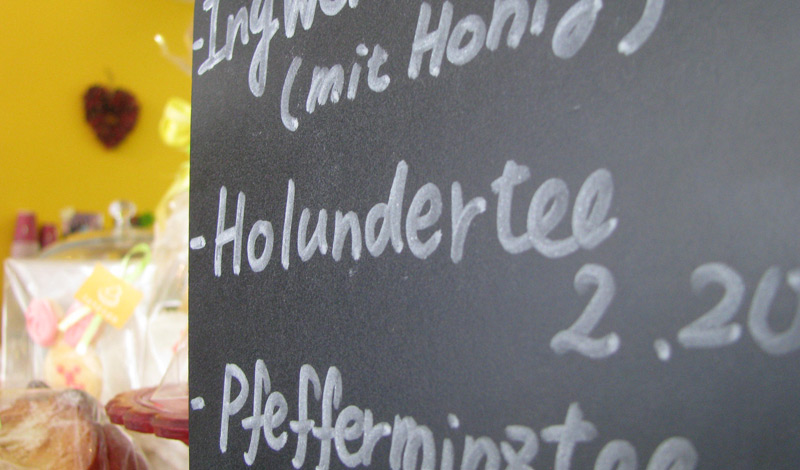 -Ingwer
(mit Honig)
-Holundertee
2.20
-Pfefferminztee